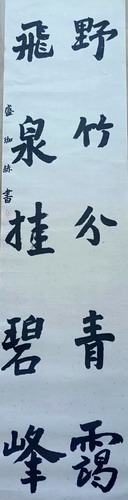 野竹分青靄
飛泉挂碧峰
盛珈赫書